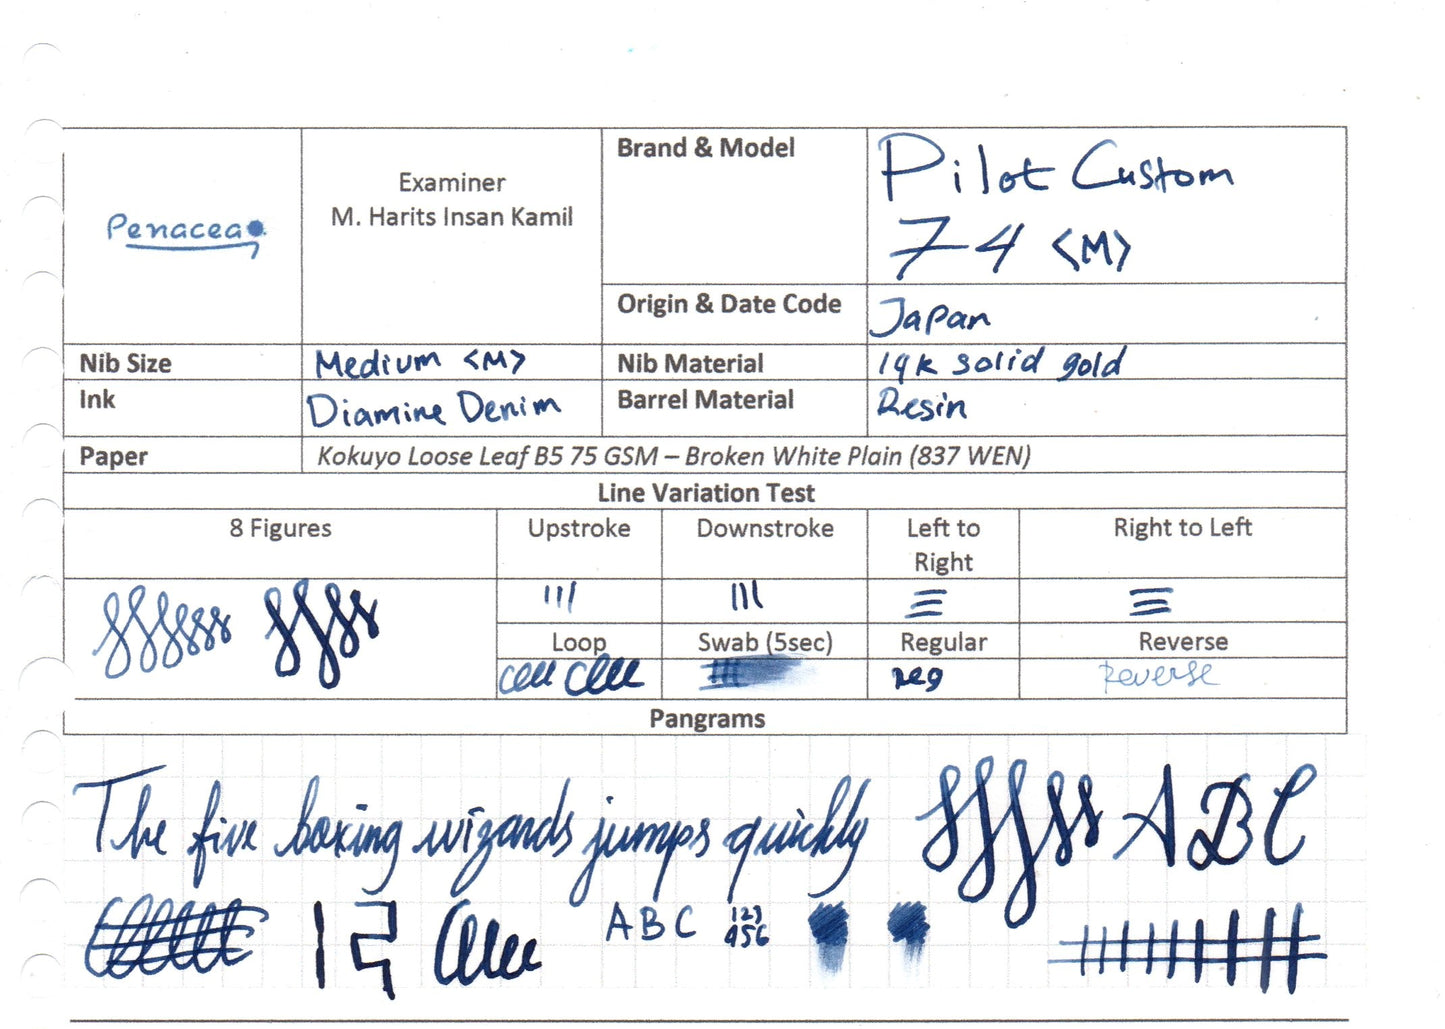 Penacea
Examiner
M. Harits Insan Kamil
Brand & Model
Pilot Custom
74 <M>
Origin & Date Code
Japan
Nib Size
Medium <M>
Nib Material
14k solid gold
Ink
Diamine Denim
Barrel Material
Resin
Paper
Kokuyo Loose Leaf B5 75 GSM – Broken White Plain (837 WEN)
Line Variation Test
8 Figures
Upstroke
Downstroke
Left to
Right
Right to Left
Loop
Swab (5sec)
Regular
Reverse
reg
Reverse
Pangrams
The five boxing wizards jumps quickly
ABC
ABC
123
456